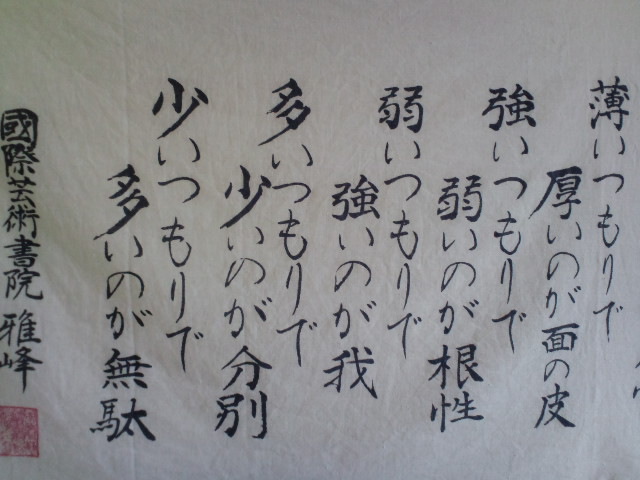 薄いつもりで
厚いのが面の皮
強いつもりで
弱いのが根性
弱いつもりで
強いのが我
多いつもりで
少いのが分別
少いつもりで
多いのが無駄
國際芸術書院 雅峰